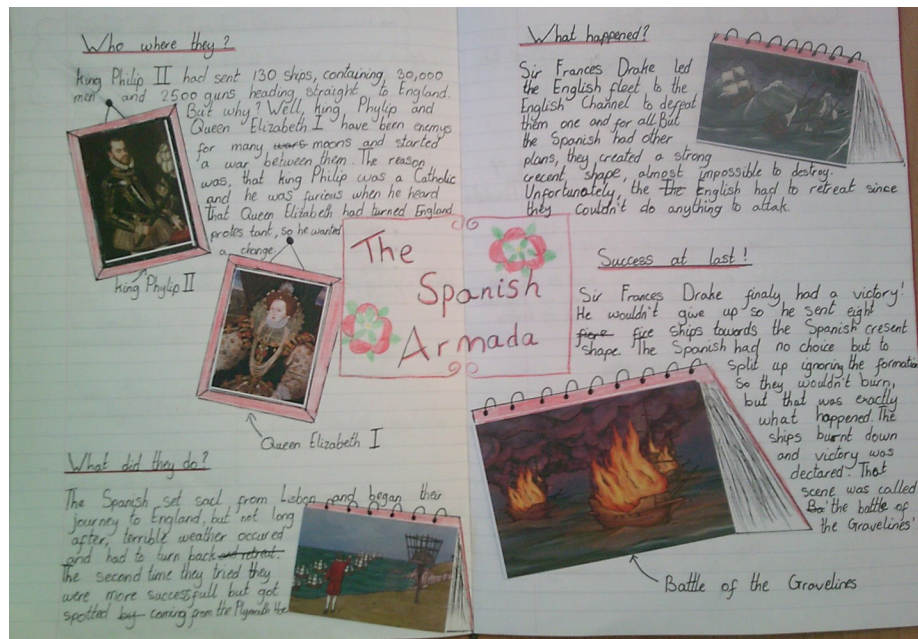 Who where they?
king Philip II had sent 130 ships, containing, 30,000
men and 2500 guns heading straight to England.
But why? Well, king Phylip and
Queen Elizabeth I have been enemys
for many wars moons and started
a war between them. The reason
was, that king Philip was a Catholic
and he was furious when he heard
that Queen Elizabeth had turned England
protes tant, so he wanted
a change.
king Phylip II
Queen Elizabeth I
What did they do?
The Spanish set sail from Lisbon and began their
journey to England, but not long
after, terrible weather occured
and had to turn back and retreat.
The second time they tried they
were more successfull but got
spotted by coming from the Plymouth Hoe
The
Spanish
Armada
What happened?
Sir Frances Drake led
the English fleet to the
English Channel to defeat
them one and for all. But
the Spanish had other
plans, they created a strong
crecent, shape, almost impossible to destroy.
Unfortunately, the The English had to retreat since
they couldn't do anything to attak.
Success at last!
Sir Frances Drake finaly had a victory!
He wouldn't give up so he sent eight
fiere fire ships towards the Spanish cresent
shape. The Spanish had no choice but to
split up ignoring the formation
so they wouldn't burn,
but that was exactly
what happened. The
ships burnt down
and victory was
declared. That
scene was called
Ba the battle of
the Gravelines
Battle of the Gravelines